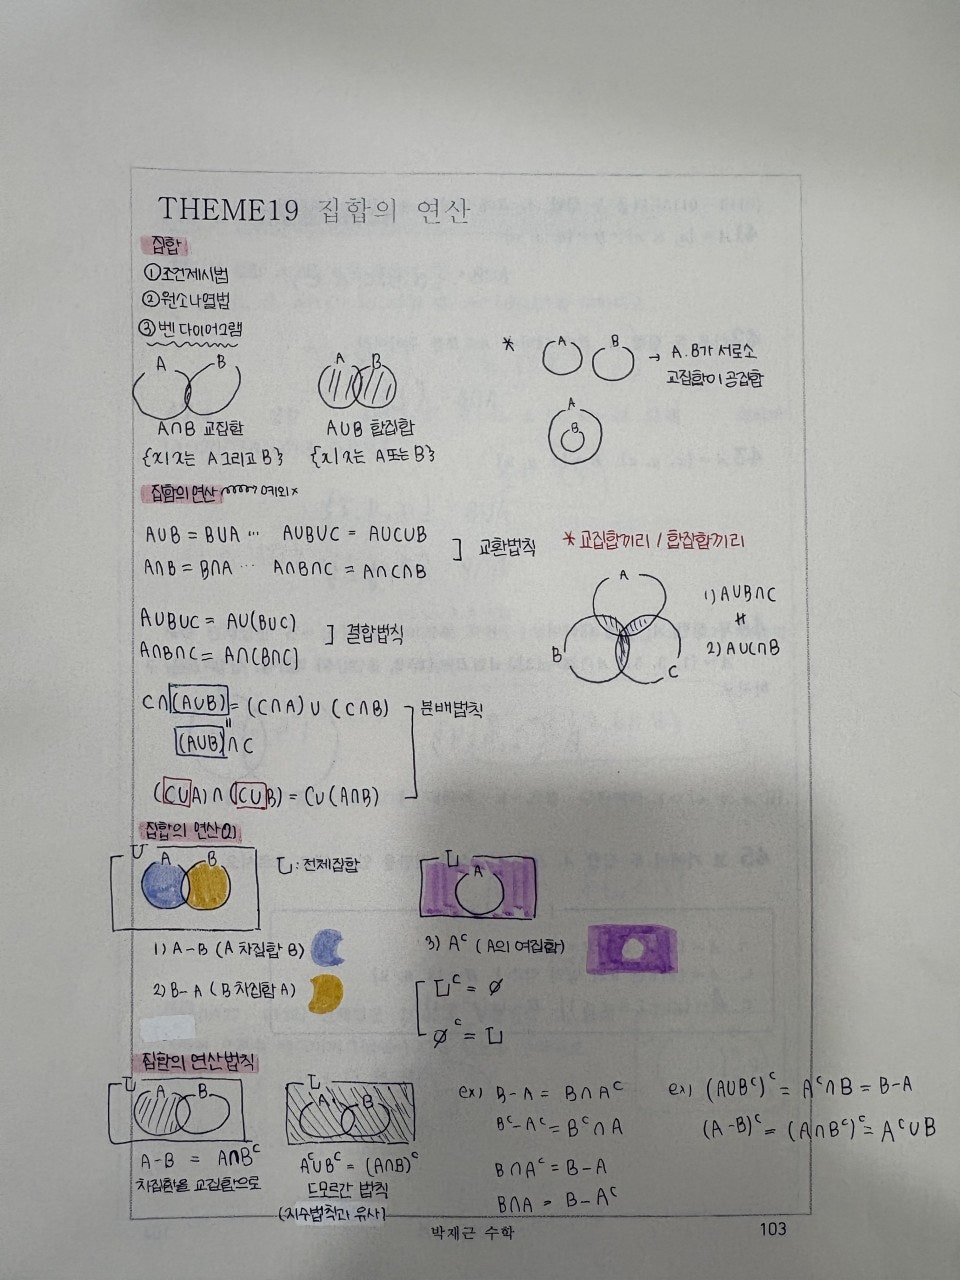 THEME19 집합의 연산
집합
①조건제시법
②원소나열법
③벤 다이어그램
A B
A∩B 교집합
{x|x는 A그리고 B}
A B
A∪B 합집합
{x|x는 A또는 B}
* A B → A.B가 서로소
교집합이 공집합
A
B
집합의 연산 예외x
A∪B = B∪A ··· A∪B∪C = A∪C∪B
A∩B = B∩A ··· A∩B∩C = A∩C∩B
] 교환법칙
*교집합끼리 / 합집합끼리
A∪B∪C = A∪(B∪C)
A∩B∩C = A∩(B∩C)
] 결합법칙
A
B
C
1) A∪B∩C
≠
2) A∪C∩B
C∩(A∪B) = (C∩A)∪(C∩B)
(A∪B)∩C
(C∪A)∩(C∪B) = C∪(A∩B)
분배법칙
집합의 연산(2)
U A B U:전체집합
1) A-B (A 차집합 B)
2) B-A (B차집합 A)
U A
3) Aᶜ (A의 여집합)
Uᶜ = ∅
∅ᶜ = U
집합의 연산법칙
U A B
A-B = A∩Bᶜ
차집합을 교집합으로
U A B
Aᶜ∪Bᶜ = (A∩B)ᶜ
드모르간 법칙
(지수법칙과 유사)
ex) B-A = B∩Aᶜ
Bᶜ-Aᶜ = Bᶜ∩A
B∩Aᶜ = B-A
B∩A = B-Aᶜ
ex) (A∪Bᶜ)ᶜ = Aᶜ∩B = B-A
(A-B)ᶜ = (A∩Bᶜ)ᶜ = Aᶜ∪B
박재근 수학
103